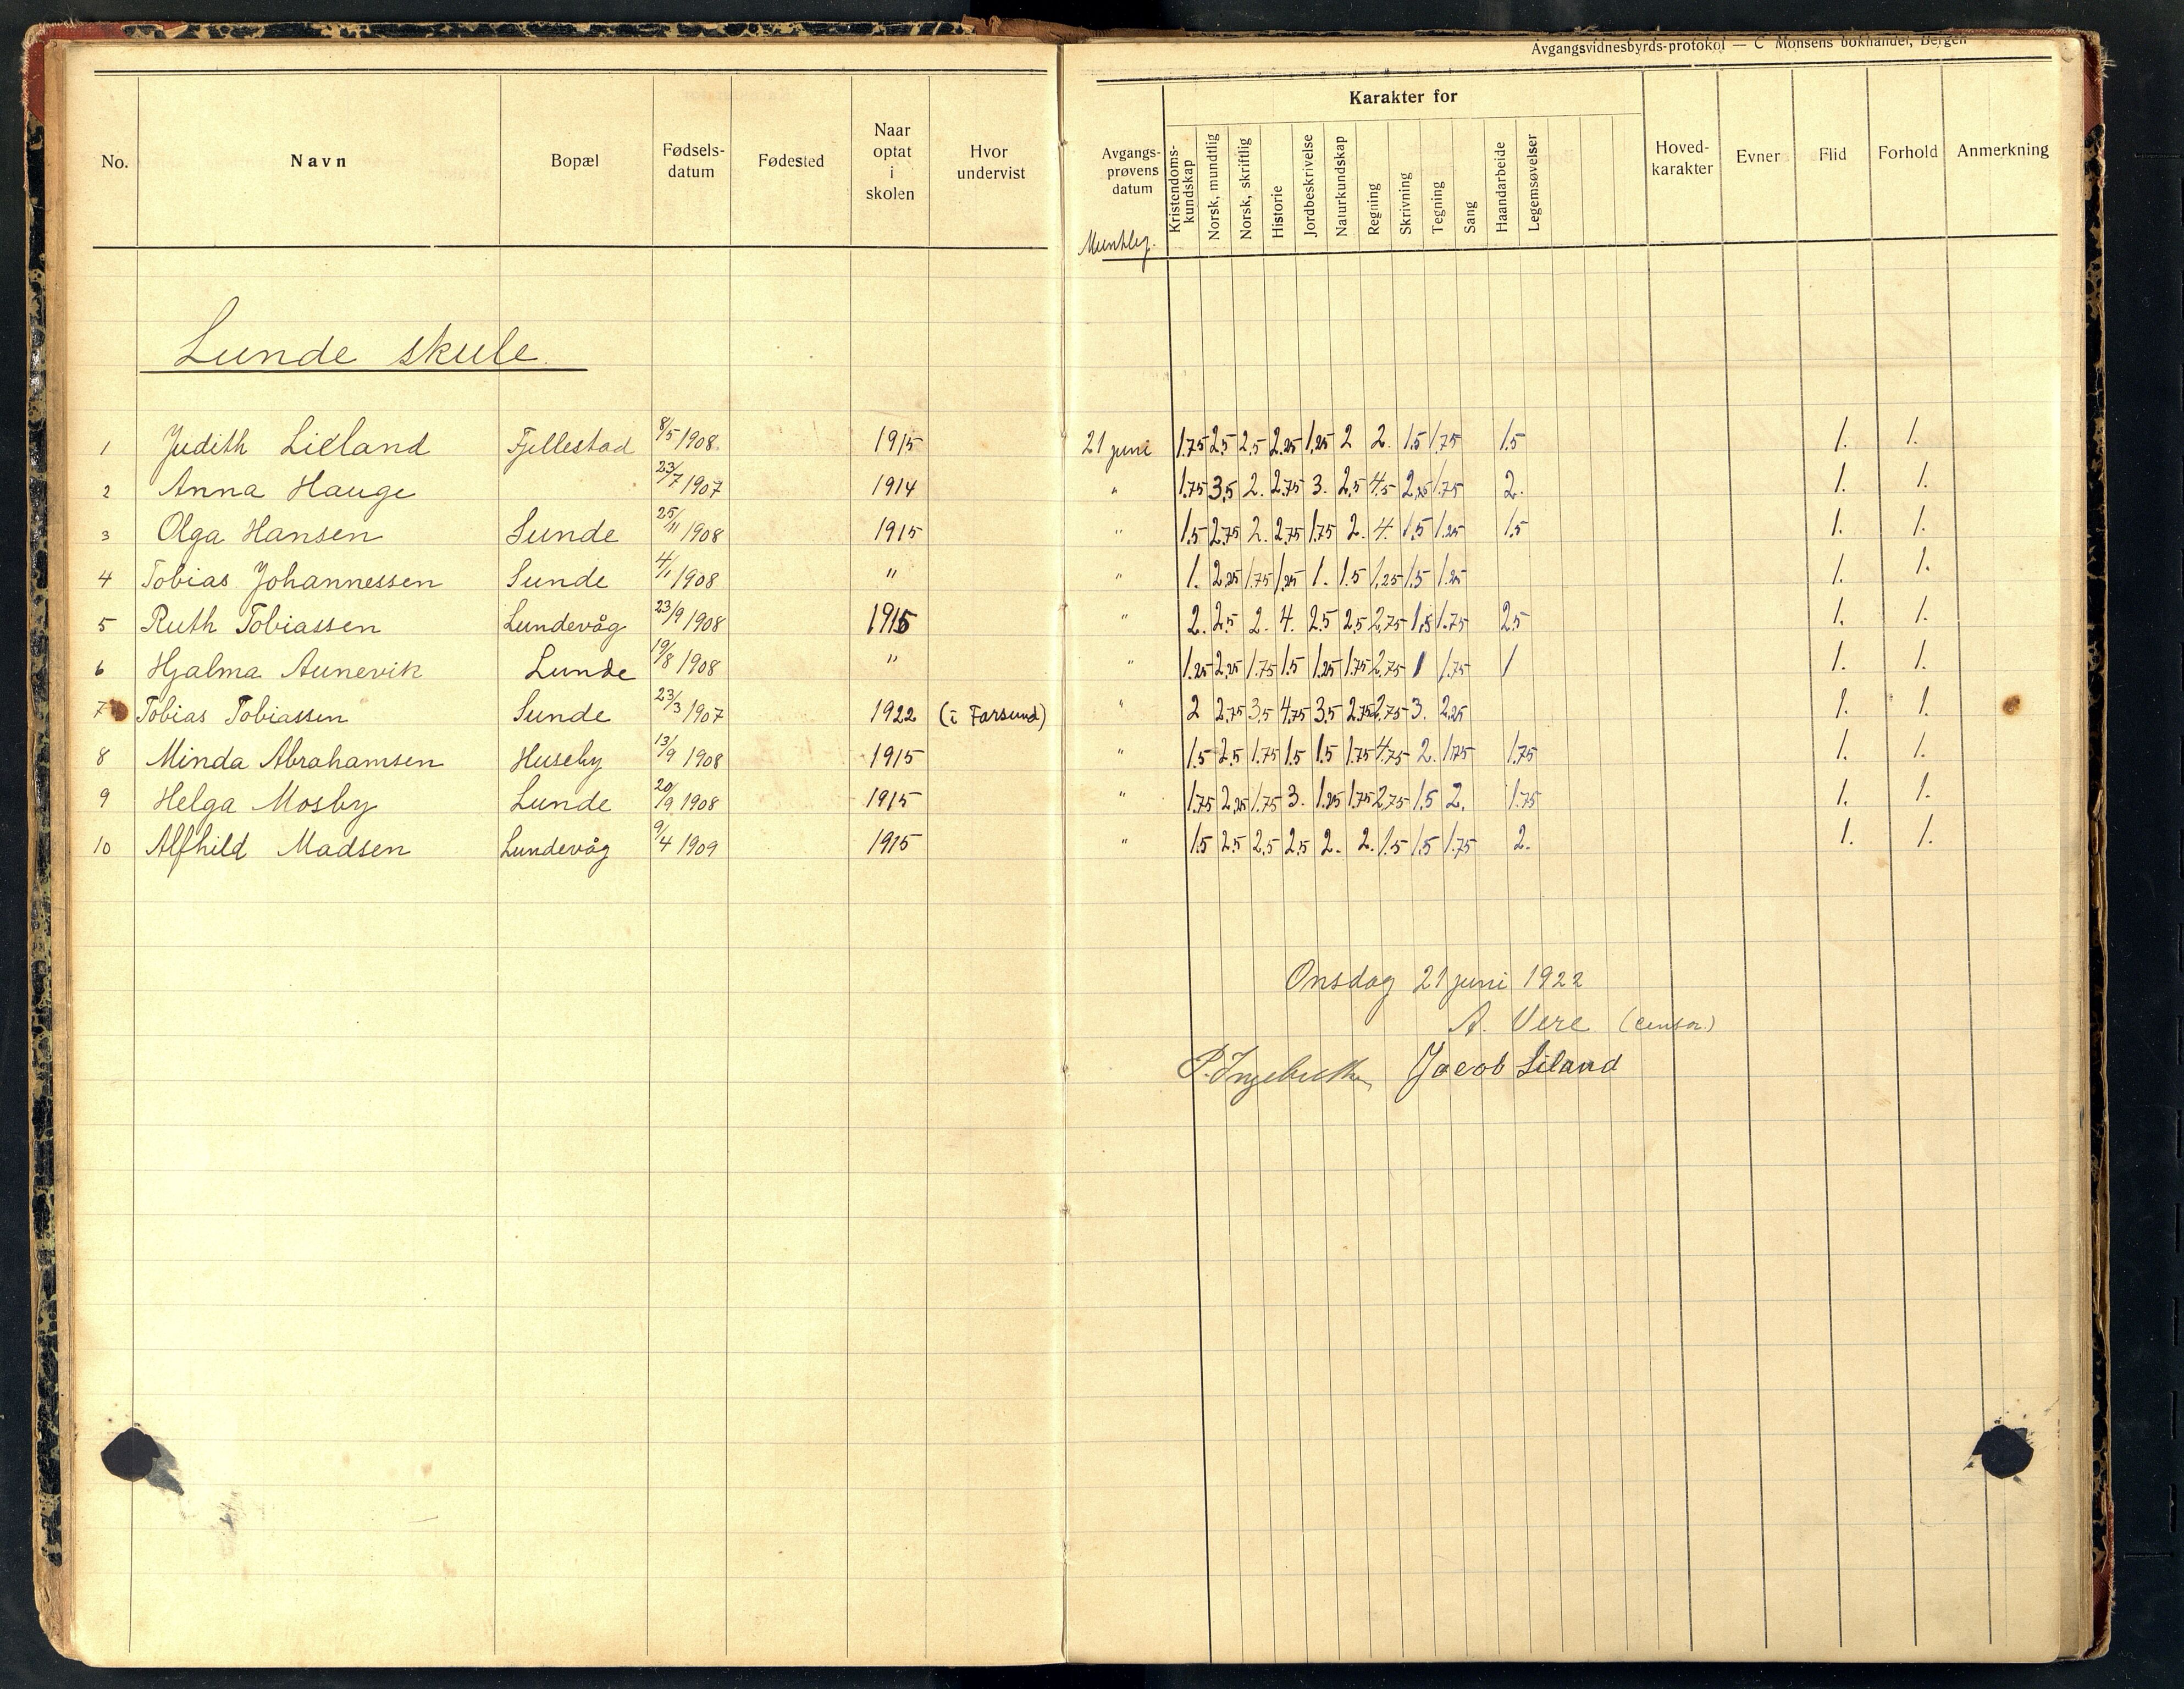 Avgangsvidnesbyrds-protokol — C Monsens bokhandel, Bergen
No. Navn Bopæl Fødsels-datum Fødested Naar optat i skolen Hvor undervist Avgangs-prøvens datum Karakter for Hoved-karakter Evner Flid Forhold Anmerkning
Kristendoms-kundskap Norsk, mundtlig Norsk, skriftlig Historie Jordbeskrivelse Naturkundskap Regning Skrivning Tegning Sang Haandarbeide Legemsøvelser
Lunde skule.
1 Judith Lieland Fjellestad 8/5 1908. 1915 21 juni 1.75 2.5 2.5 2.25 1.25 2 2. 1.5 1.75 1.5 1. 1.
2 Anna Hauge 23/7 1907 1914 " 1.75 3.5 2. 2.75 3. 2.5 4.5 2.25 1.75 2. 1. 1.
3 Olga Hansen Sunde 25/11 1908 1915 " 1.5 2.75 2. 2.75 1.75 2. 4. 1.5 1.25 1.5 1. 1.
4 Tobias Johannessen Sunde 4/1 1908 " " 1. 2.25 1.75 1.25 1. 1.5 1.25 1.5 1.25 1. 1.
5 Ruth Tobiassen Lundevåg 23/9 1908 1915 " 2. 2.5 2. 4. 2.5 2.5 2.75 1.5 1.75 2.5 1. 1.
6 Hjalma Aunevik Lunde 19/8 1908 " " 1.25 2.25 1.75 1.5 1.25 1.75 2.75 1 1.75 1 1. 1.
7 Tobias Tobiassen Sunde 23/3 1907 1922 (i Farsund) " 2 2.75 3.5 4.75 3.5 2.75 2.75 3. 2.25 1. 1.
8 Minda Abrahamsen Huseby 13/9 1908 1915 " 1.5 2.5 1.75 1.5 1.5 1.75 4.75 2. 1.75 1.75 1. 1.
9 Helga Mosby Lunde 20/9 1908 1915 " 1.75 2.25 1.75 3. 1.25 1.75 2.75 1.5 2. 1.75 1. 1.
10 Alfhild Madsen Lundevåg 9/4 1909 1915 " 1.5 2.5 2.5 2.5 2. 2. 1.5 1.5 1.75 2. 1. 1.
Onsdag 21 juni 1922
A. Vere (censor)
Jacob Liland